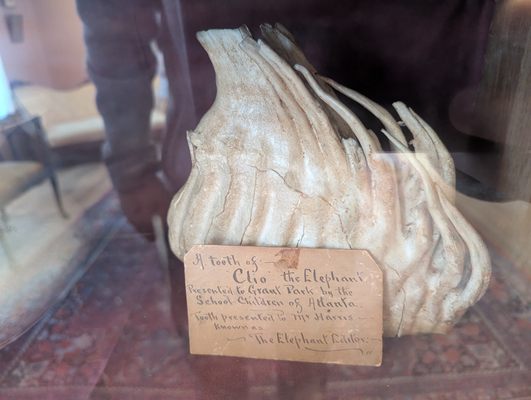 A tooth of
Clio the Elephant
Presented to Grant Park by the
School-Children of Atlanta.
Tooth presented to Mr Harris
Known as
"The Elephant Editor."